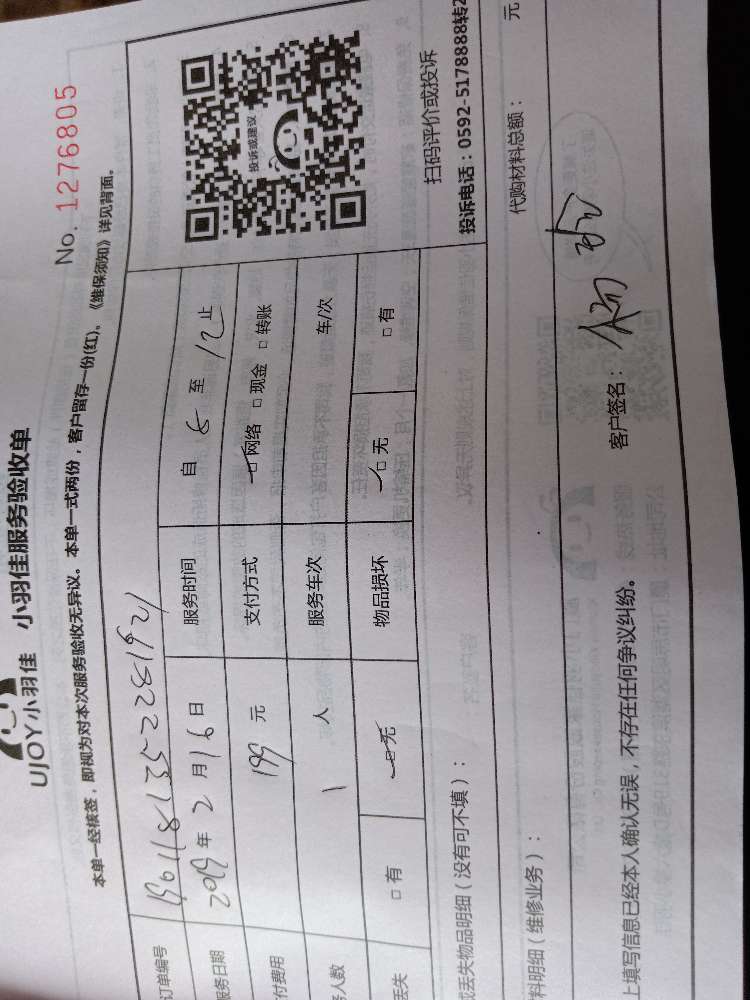 UJOY小羽佳 小羽佳服务验收单
No. 1276805
本单一经核签，即视为对本次服务验收无异议。本单一式两份，客户留存一份(红)。《维保须知》详见背面。
订单编号
服务日期 2019 年 2 月 16 日 服务时间 自 8 至 12 止
付费用 199 元 支付方式 □ 网络 □ 现金 □ 转账
务人数 1 人 服务车次 车/次
丢失 □ 有 □ 无 物品损坏 □ 无 □ 有
投诉或建议
扫码评价或投诉
投诉电话：0592-5178888转2
或丢失物品明细（没有可不填）：
料明细（维修业务）： 代购材料总额： 元
上填写信息已经本人确认无误，不存在任何争议纠纷。 客户签名：